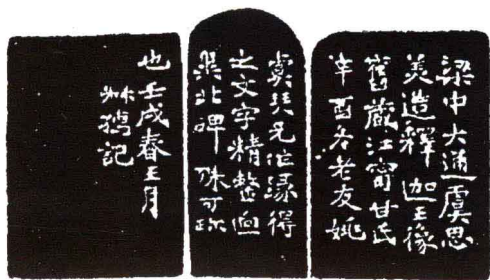 梁中大通虞思
美造釋迦王像
舊藏江甯甘氏
辛酉冬老友姚
虞琹兄作緣得
之文字精整迥
異北碑殊可珍
也壬戌春王月
尗孺記